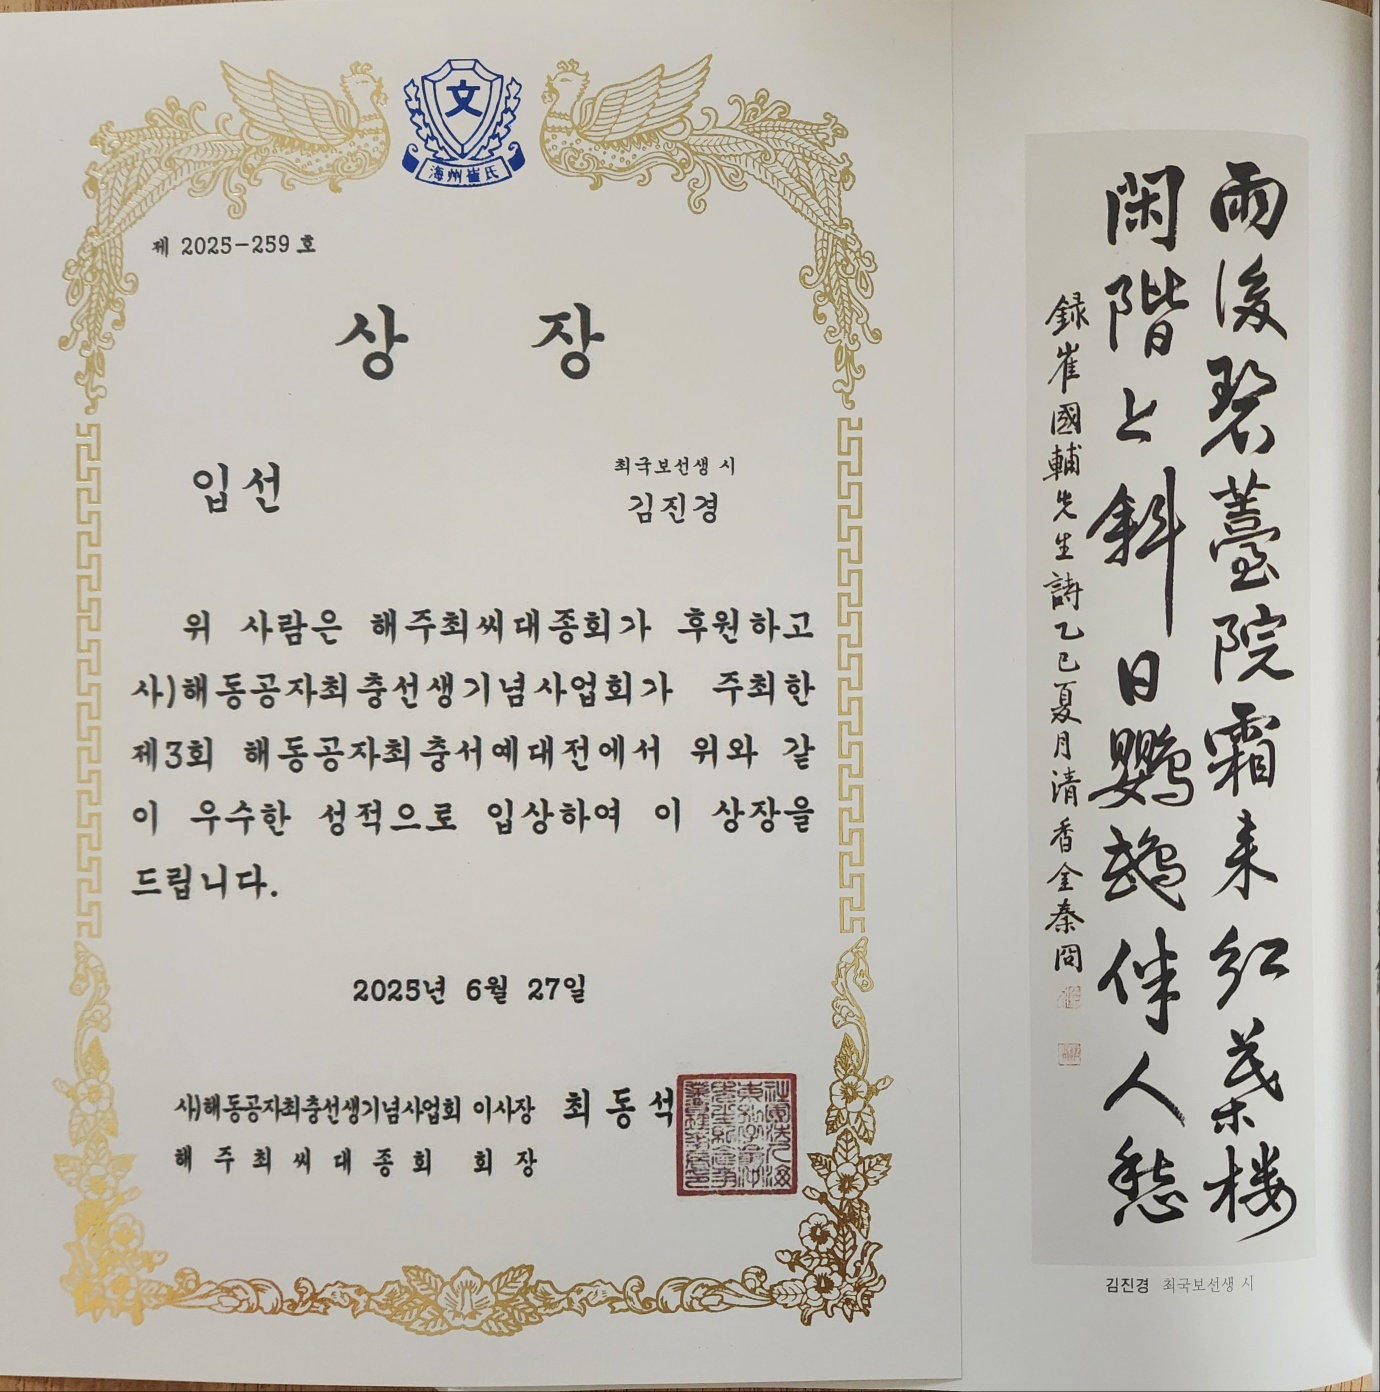 文
海州崔氏
제 2025-259 호
상 장
입선
최국보선생 시
김진경
위 사람은 해주최씨대종회가 후원하고
사)해동공자최충선생기념사업회가 주최한
제3회 해동공자최충서예대전에서 위와 같
이 우수한 성적으로 입상하여 이 상장을
드립니다.
2025년 6월 27일
사)해동공자최충선생기념사업회 이사장 최동석
해주최씨대종회 회장
雨後碧蘚院霜來紅葉樓
閑階上斜日鸚鵡伴人愁
録崔國輔先生詩乙巳夏月清香金秦冏
김진경 최국보선생 시